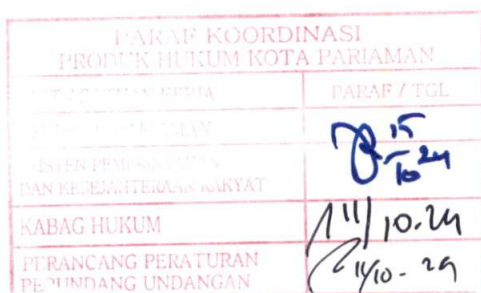 PARAF KOORDINASI
PRODUK HUKUM KOTA PARIAMAN
KERJA PARAF / TGL
15/10 24
DAN KESEJAHTERAAN RAKYAT
KABAG HUKUM 11/10.24
PERANCANG PERATURAN 11/10-24
PERUNDANG UNDANGAN